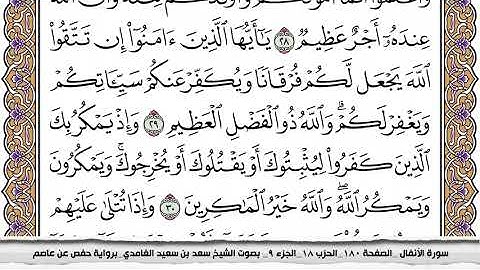 وَٱعۡلَمُوٓاْ أَنَّمَآ أَمۡوَٰلُكُمۡ وَأَوۡلَٰدُكُمۡ فِتۡنَةٞ وَأَنَّ ٱللَّهَ
عِندَهُۥٓ أَجۡرٌ عَظِيمٞ ٢٨ يَٰٓأَيُّهَا ٱلَّذِينَ ءَامَنُوٓاْ إِن تَتَّقُواْ
ٱللَّهَ يَجۡعَل لَّكُمۡ فُرۡقَانٗا وَيُكَفِّرۡ عَنكُمۡ سَيِّـَٔاتِكُمۡ
وَيَغۡفِرۡ لَكُمۡۗ وَٱللَّهُ ذُو ٱلۡفَضۡلِ ٱلۡعَظِيمِ ٢٩ وَإِذۡ يَمۡكُرُ بِكَ
ٱلَّذِينَ كَفَرُواْ لِيُثۡبِتُوكَ أَوۡ يَقۡتُلُوكَ أَوۡ يُخۡرِجُوكَۚ وَيَمۡكُرُونَ
وَيَمۡكُرُ ٱللَّهُۖ وَٱللَّهُ خَيۡرُ ٱلۡمَٰكِرِينَ ٣٠ وَإِذَا تُتۡلَىٰ عَلَيۡهِمۡ
سورة الأنفال _ الصفحة ١٨٠ _ الحزب ١٨ _ الجزء ٩ _ بصوت الشيخ سعد بن سعيد الغامدي _ برواية حفص عن عاصم